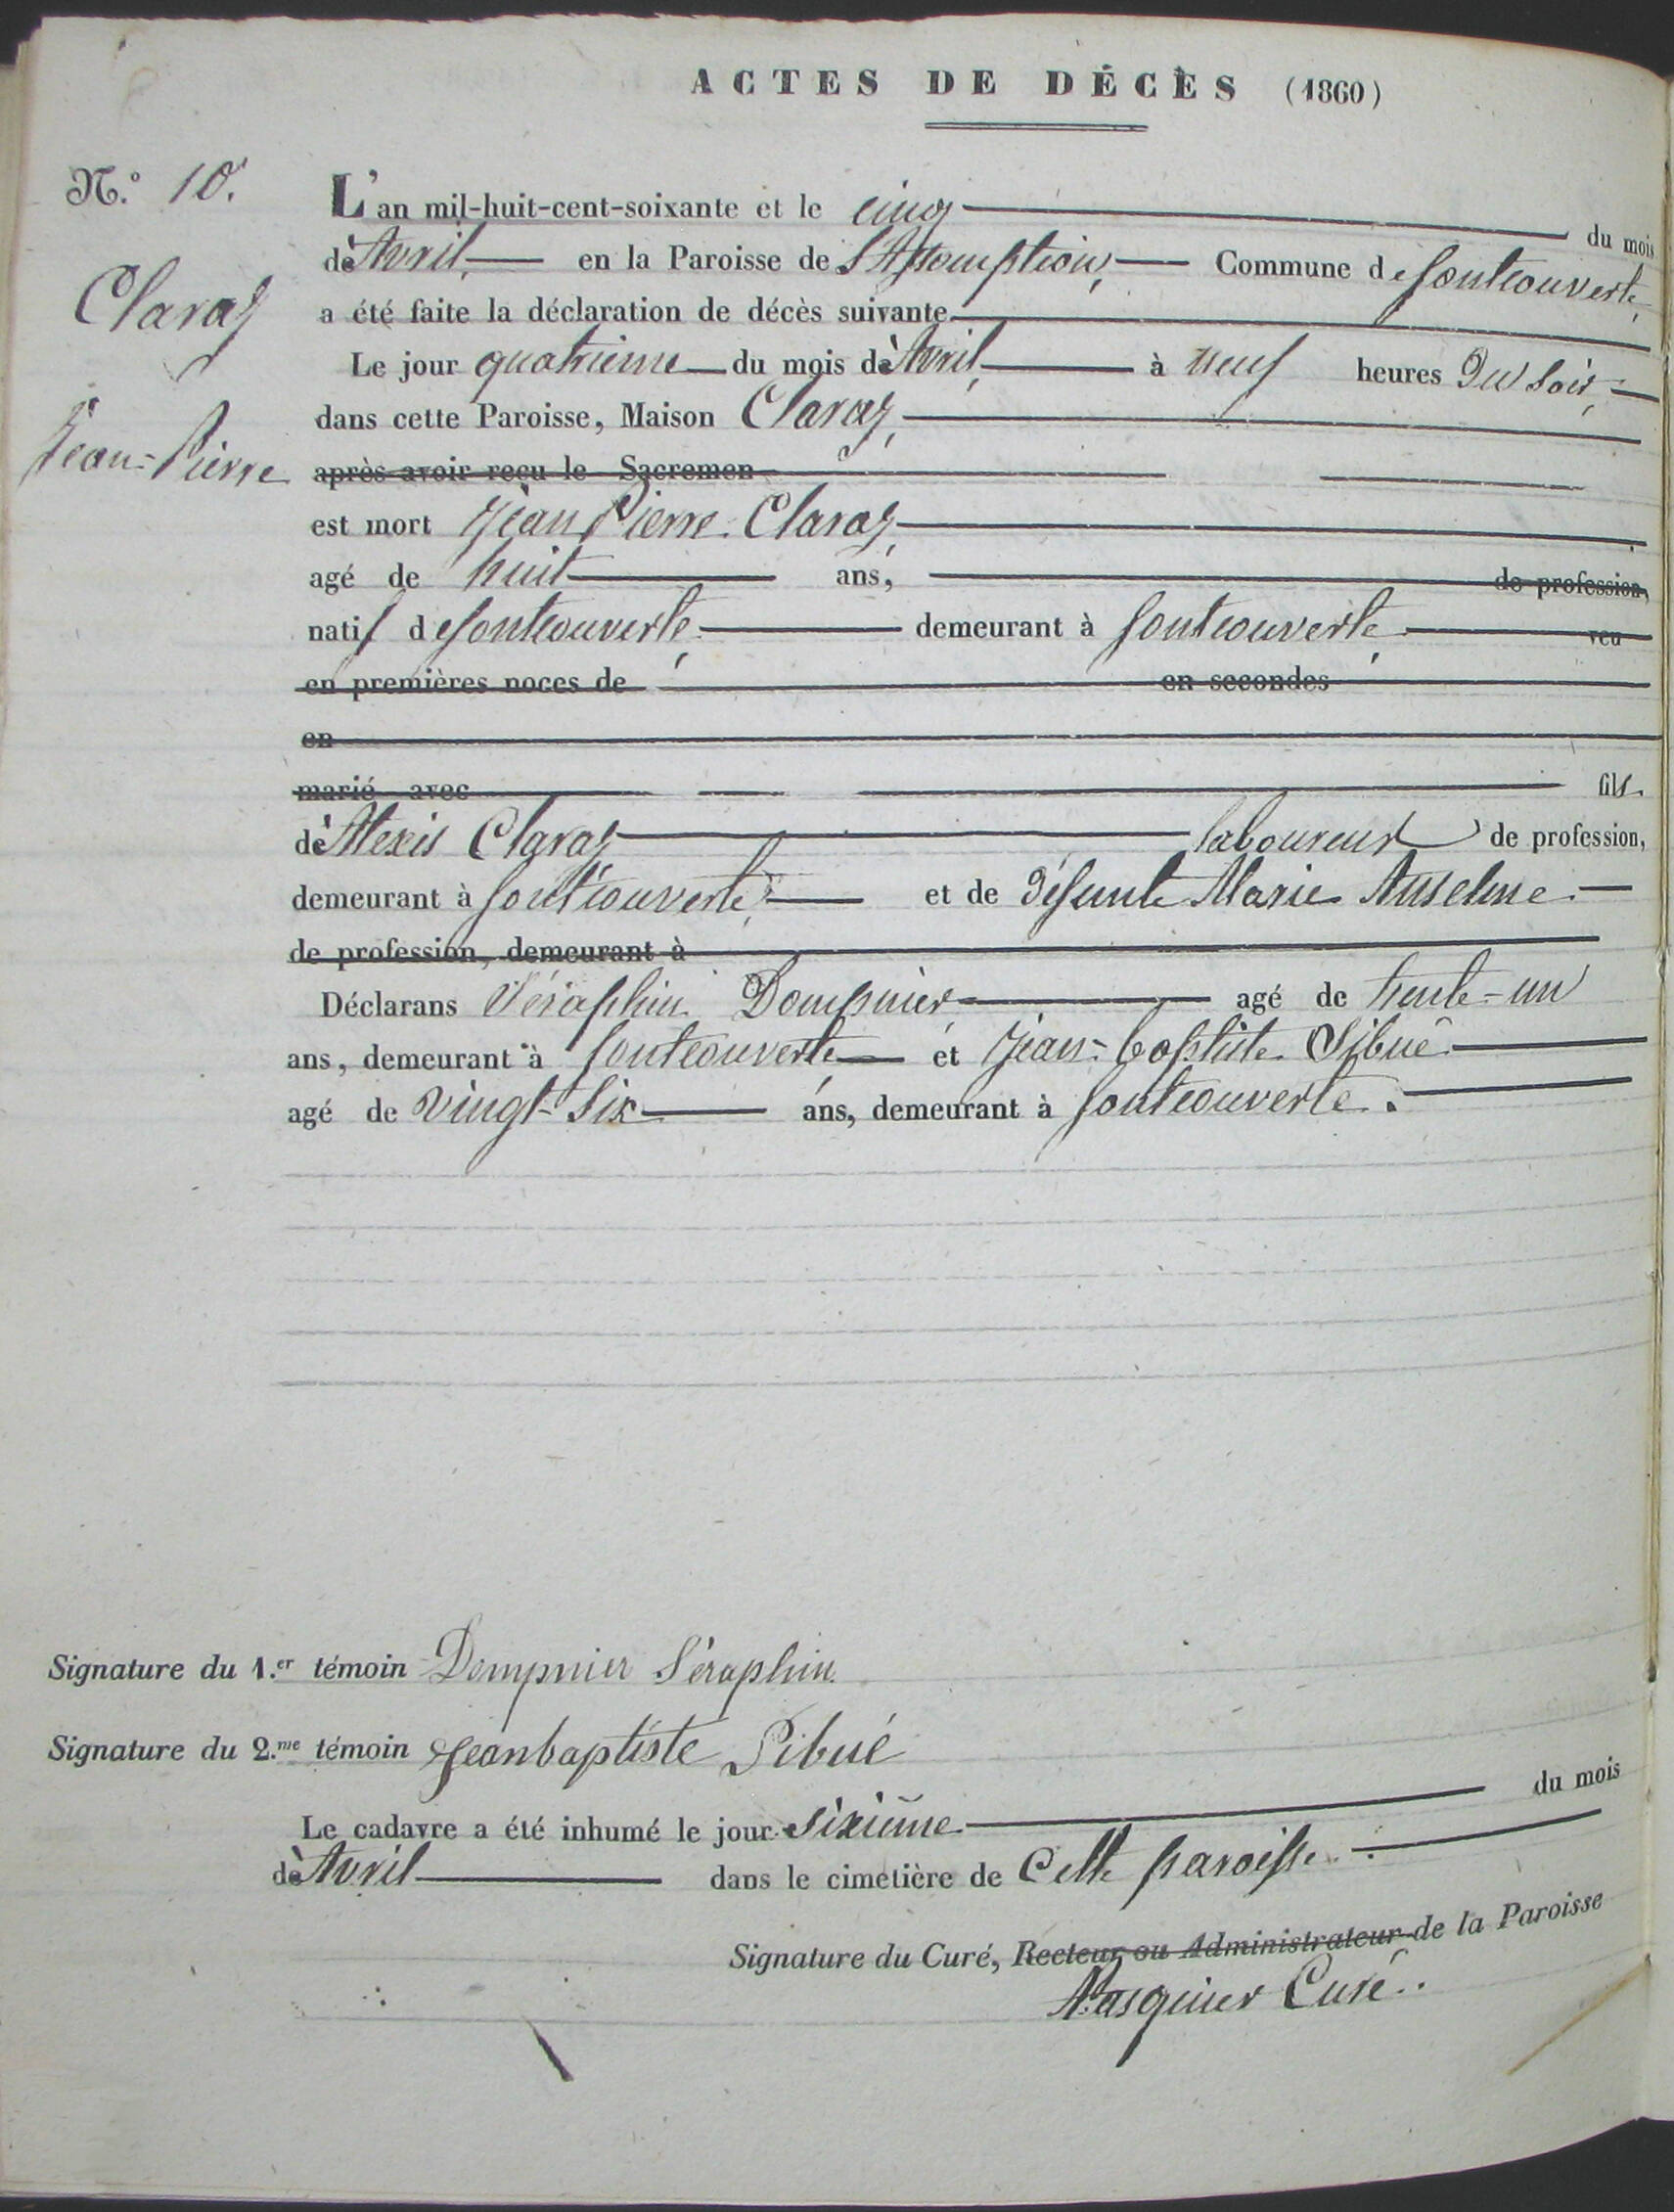 ACTES DE DÉCÈS (1860)
N.º 10.
Claraz
Jean-Pierre
L'an mil-huit-cent-soixante et le cinq du mois
d'Avril en la Paroisse de l'Assomption, Commune de fontcouverte,
a été faite la déclaration de décès suivante
Le jour quatrieme du mois d'Avril, à neuf heures Du Soir,
dans cette Paroisse, Maison Claraz,
après avoir reçu le Sacremen
est mort Jean Pierre Claraz,
agé de huit ans, de profession,
natif de fontcouverte, demeurant à fontcouverte, veu
en premières noces de en secondes
en
marié avec fils
d'Alexis Claraz laboureur de profession,
demeurant à fontcouverte, et de Défunte Marie Anselme
de profession, demeurant à
Déclarans Séraphin Dompnier, agé de trente-un
ans, demeurant à fontcouverte et Jean-baptiste Sibué
agé de vingt-Six ans, demeurant à fontcouverte.
Signature du 1.er témoin Dompnier Séraphin
Signature du 2.me témoin Jeanbaptiste Sibué
Le cadavre a été inhumé le jour Sixième du mois
d'Avril dans le cimetière de Cette paroisse.
Signature du Curé, Recteur ou Administrateur de la Paroisse
Pasquier Curé.